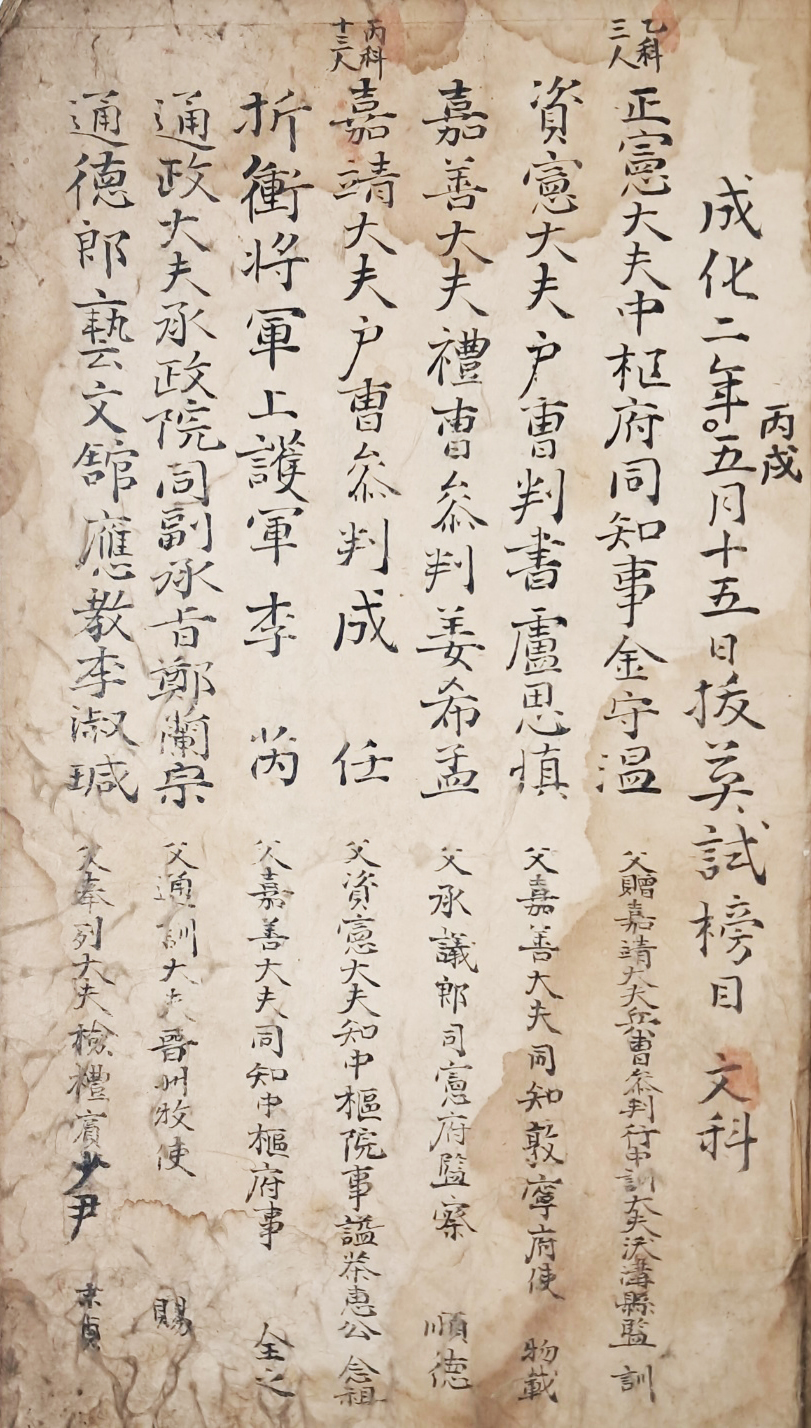 成化二年五月十五日拔英試榜目 文科
丙戌
乙科
三人
正憲大夫中樞府同知事金守溫 父贈嘉靖大夫兵曹叅判行中訓大夫沃溝縣監 訓
資憲大夫戶曹判書盧思愼 父嘉善大夫同知敦寧府使 物載
嘉善大夫禮曹叅判姜希孟 父承議郎司憲府監察 順德
丙科
十三人
嘉靖大夫戶曹叅判成 任 父資憲大夫知中樞院事諡恭惠公 念祖
折衝將軍上護軍李 芮 父嘉善大夫同知中樞府事 全之
通政大夫承政院同副承旨鄭蘭宗 父通訓大夫晉州牧使 賜
通德郎藝文舘應敎李淑瑊 父奉列大夫檢禮賓少尹 末貞